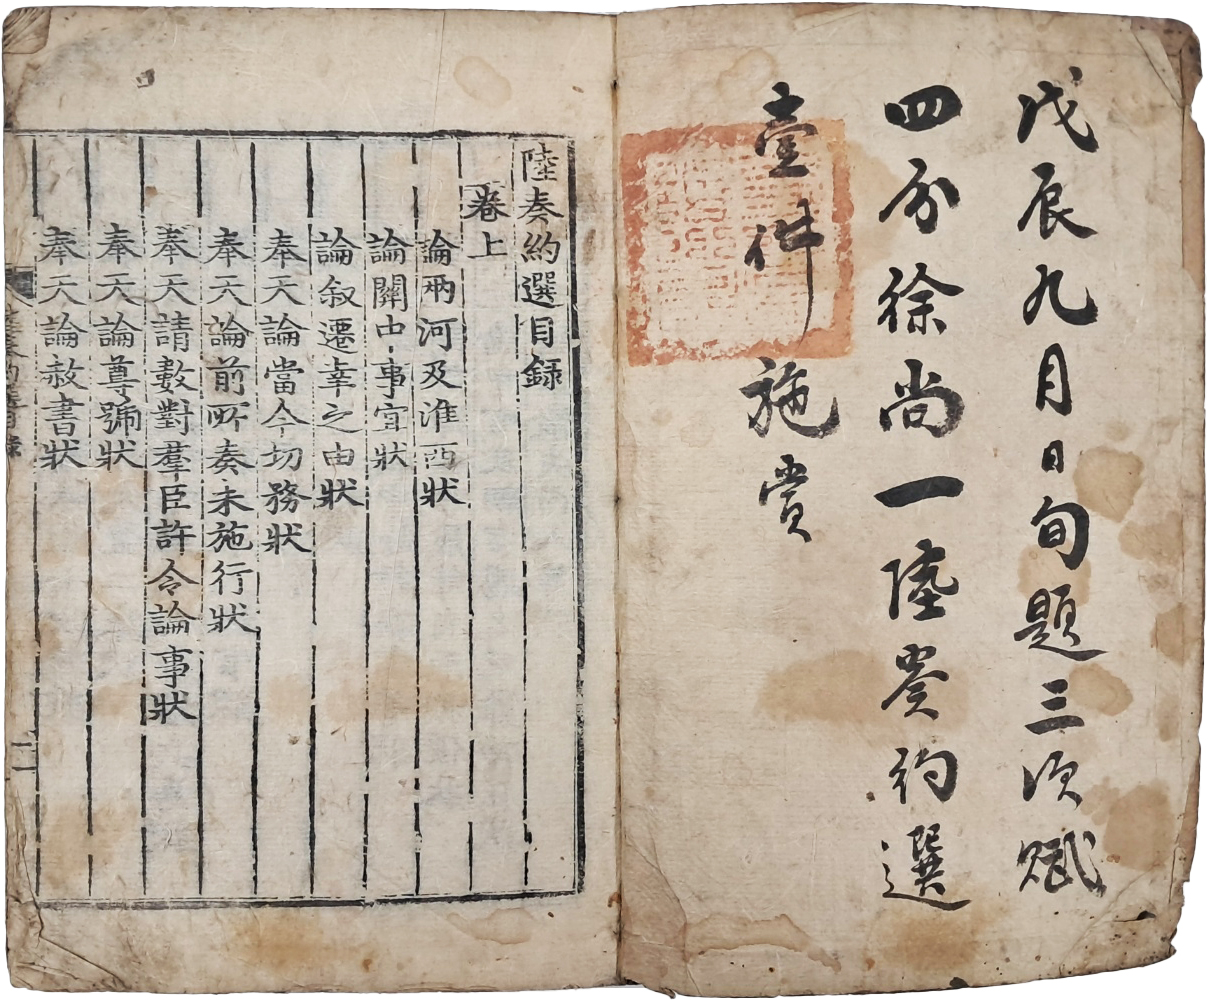 戊辰九月日旬題三次賦
四分徐尚一陸奏約選
壹件施賞
陸奏約選目錄
卷上
論兩河及淮西狀
論關中事宜狀
論叙遷幸之由狀
奉天論當今切務狀
奉天論前所奏未施行狀
奉天請數對羣臣許令論事狀
奉天論尊號狀
奉天論赦書狀